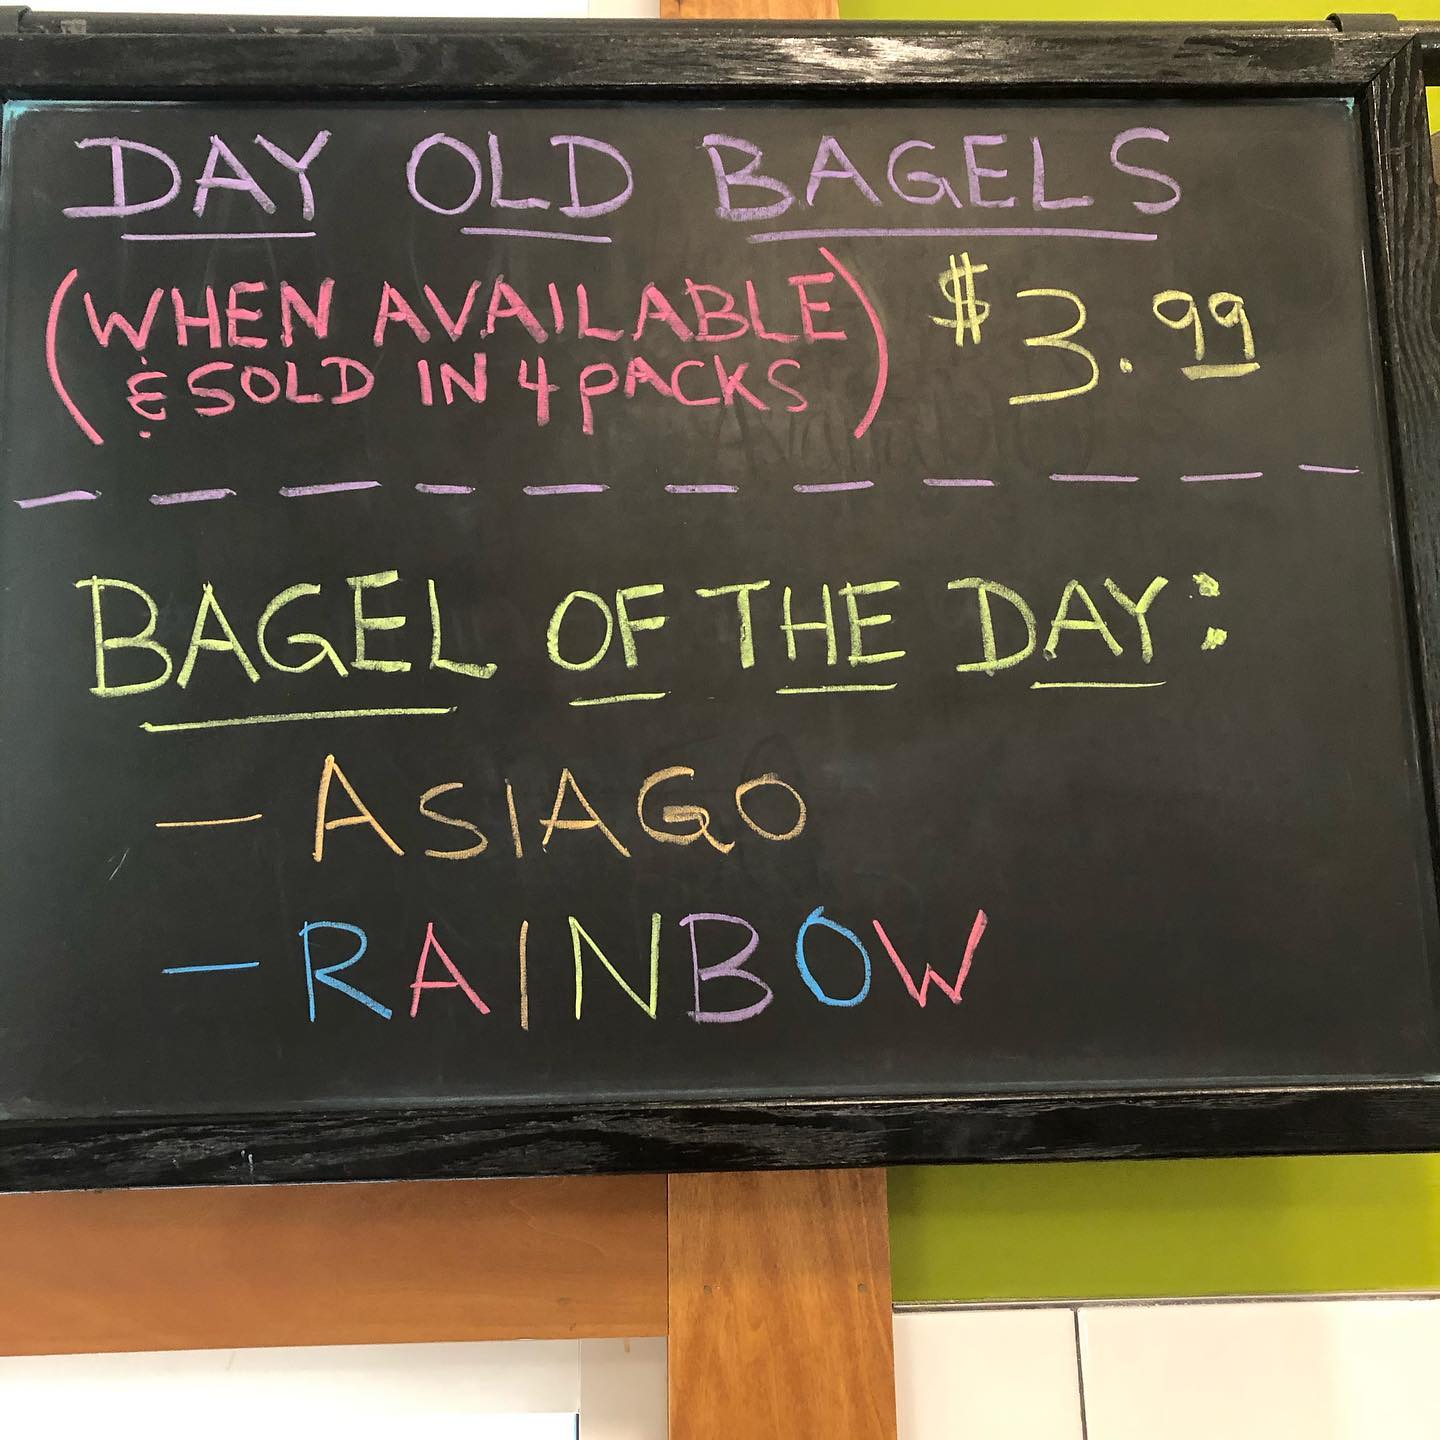 DAY OLD BAGELS
(WHEN AVAILABLE & SOLD IN 4 PACKS) $3.99
BAGEL OF THE DAY:
- ASIAGO
- RAINBOW